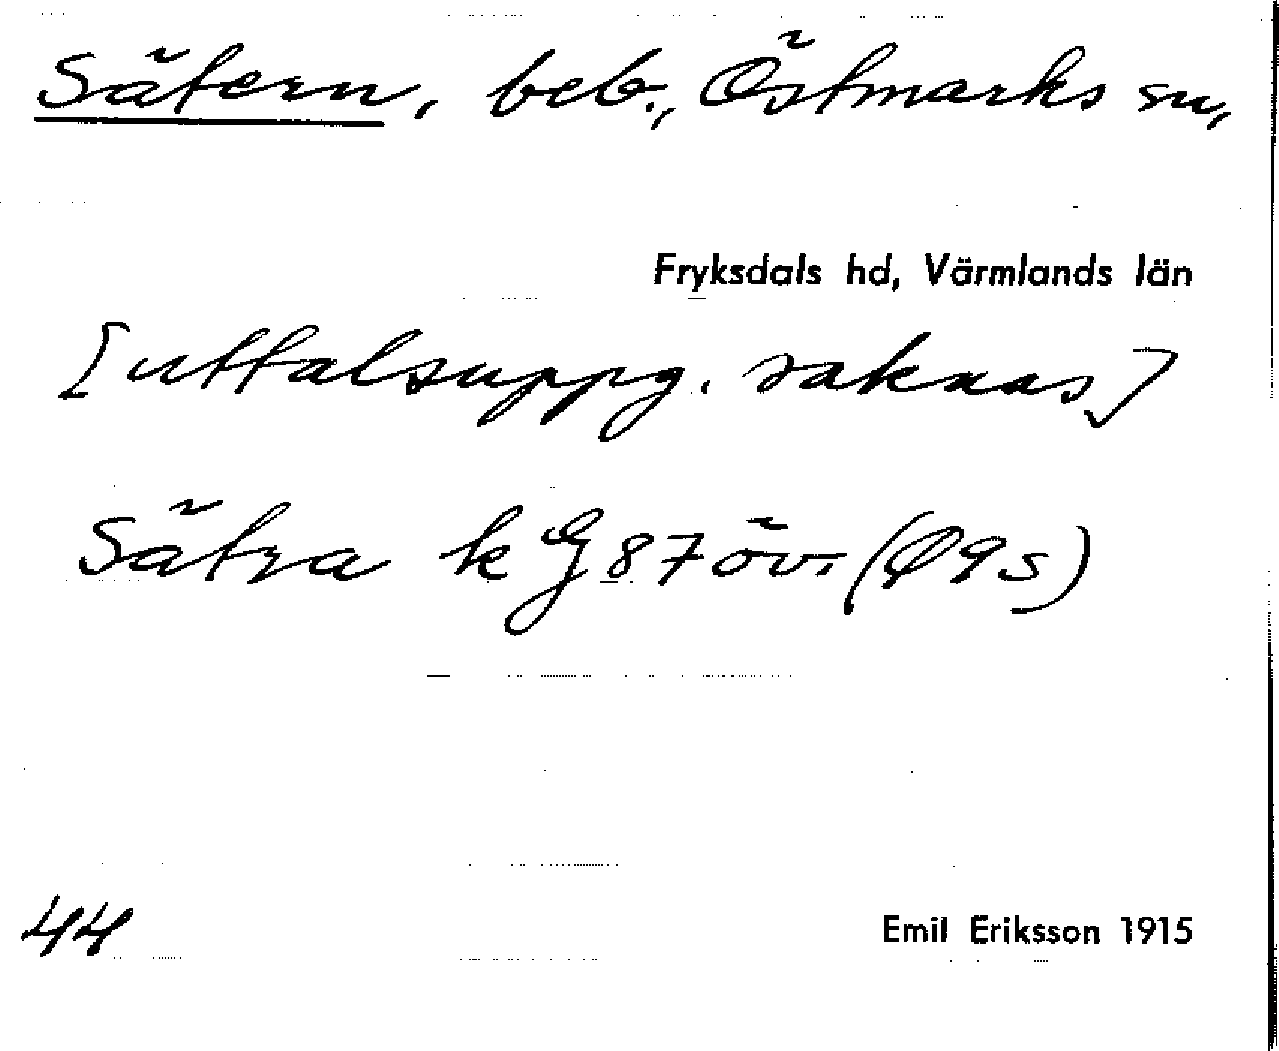 Sätern, beb., Östmarks sn,
Fryksdals hd, Värmlands län
[uttalsuppg. saknas]
Sätra k G 87 öv. (Ø9s)
44
Emil Eriksson 1915